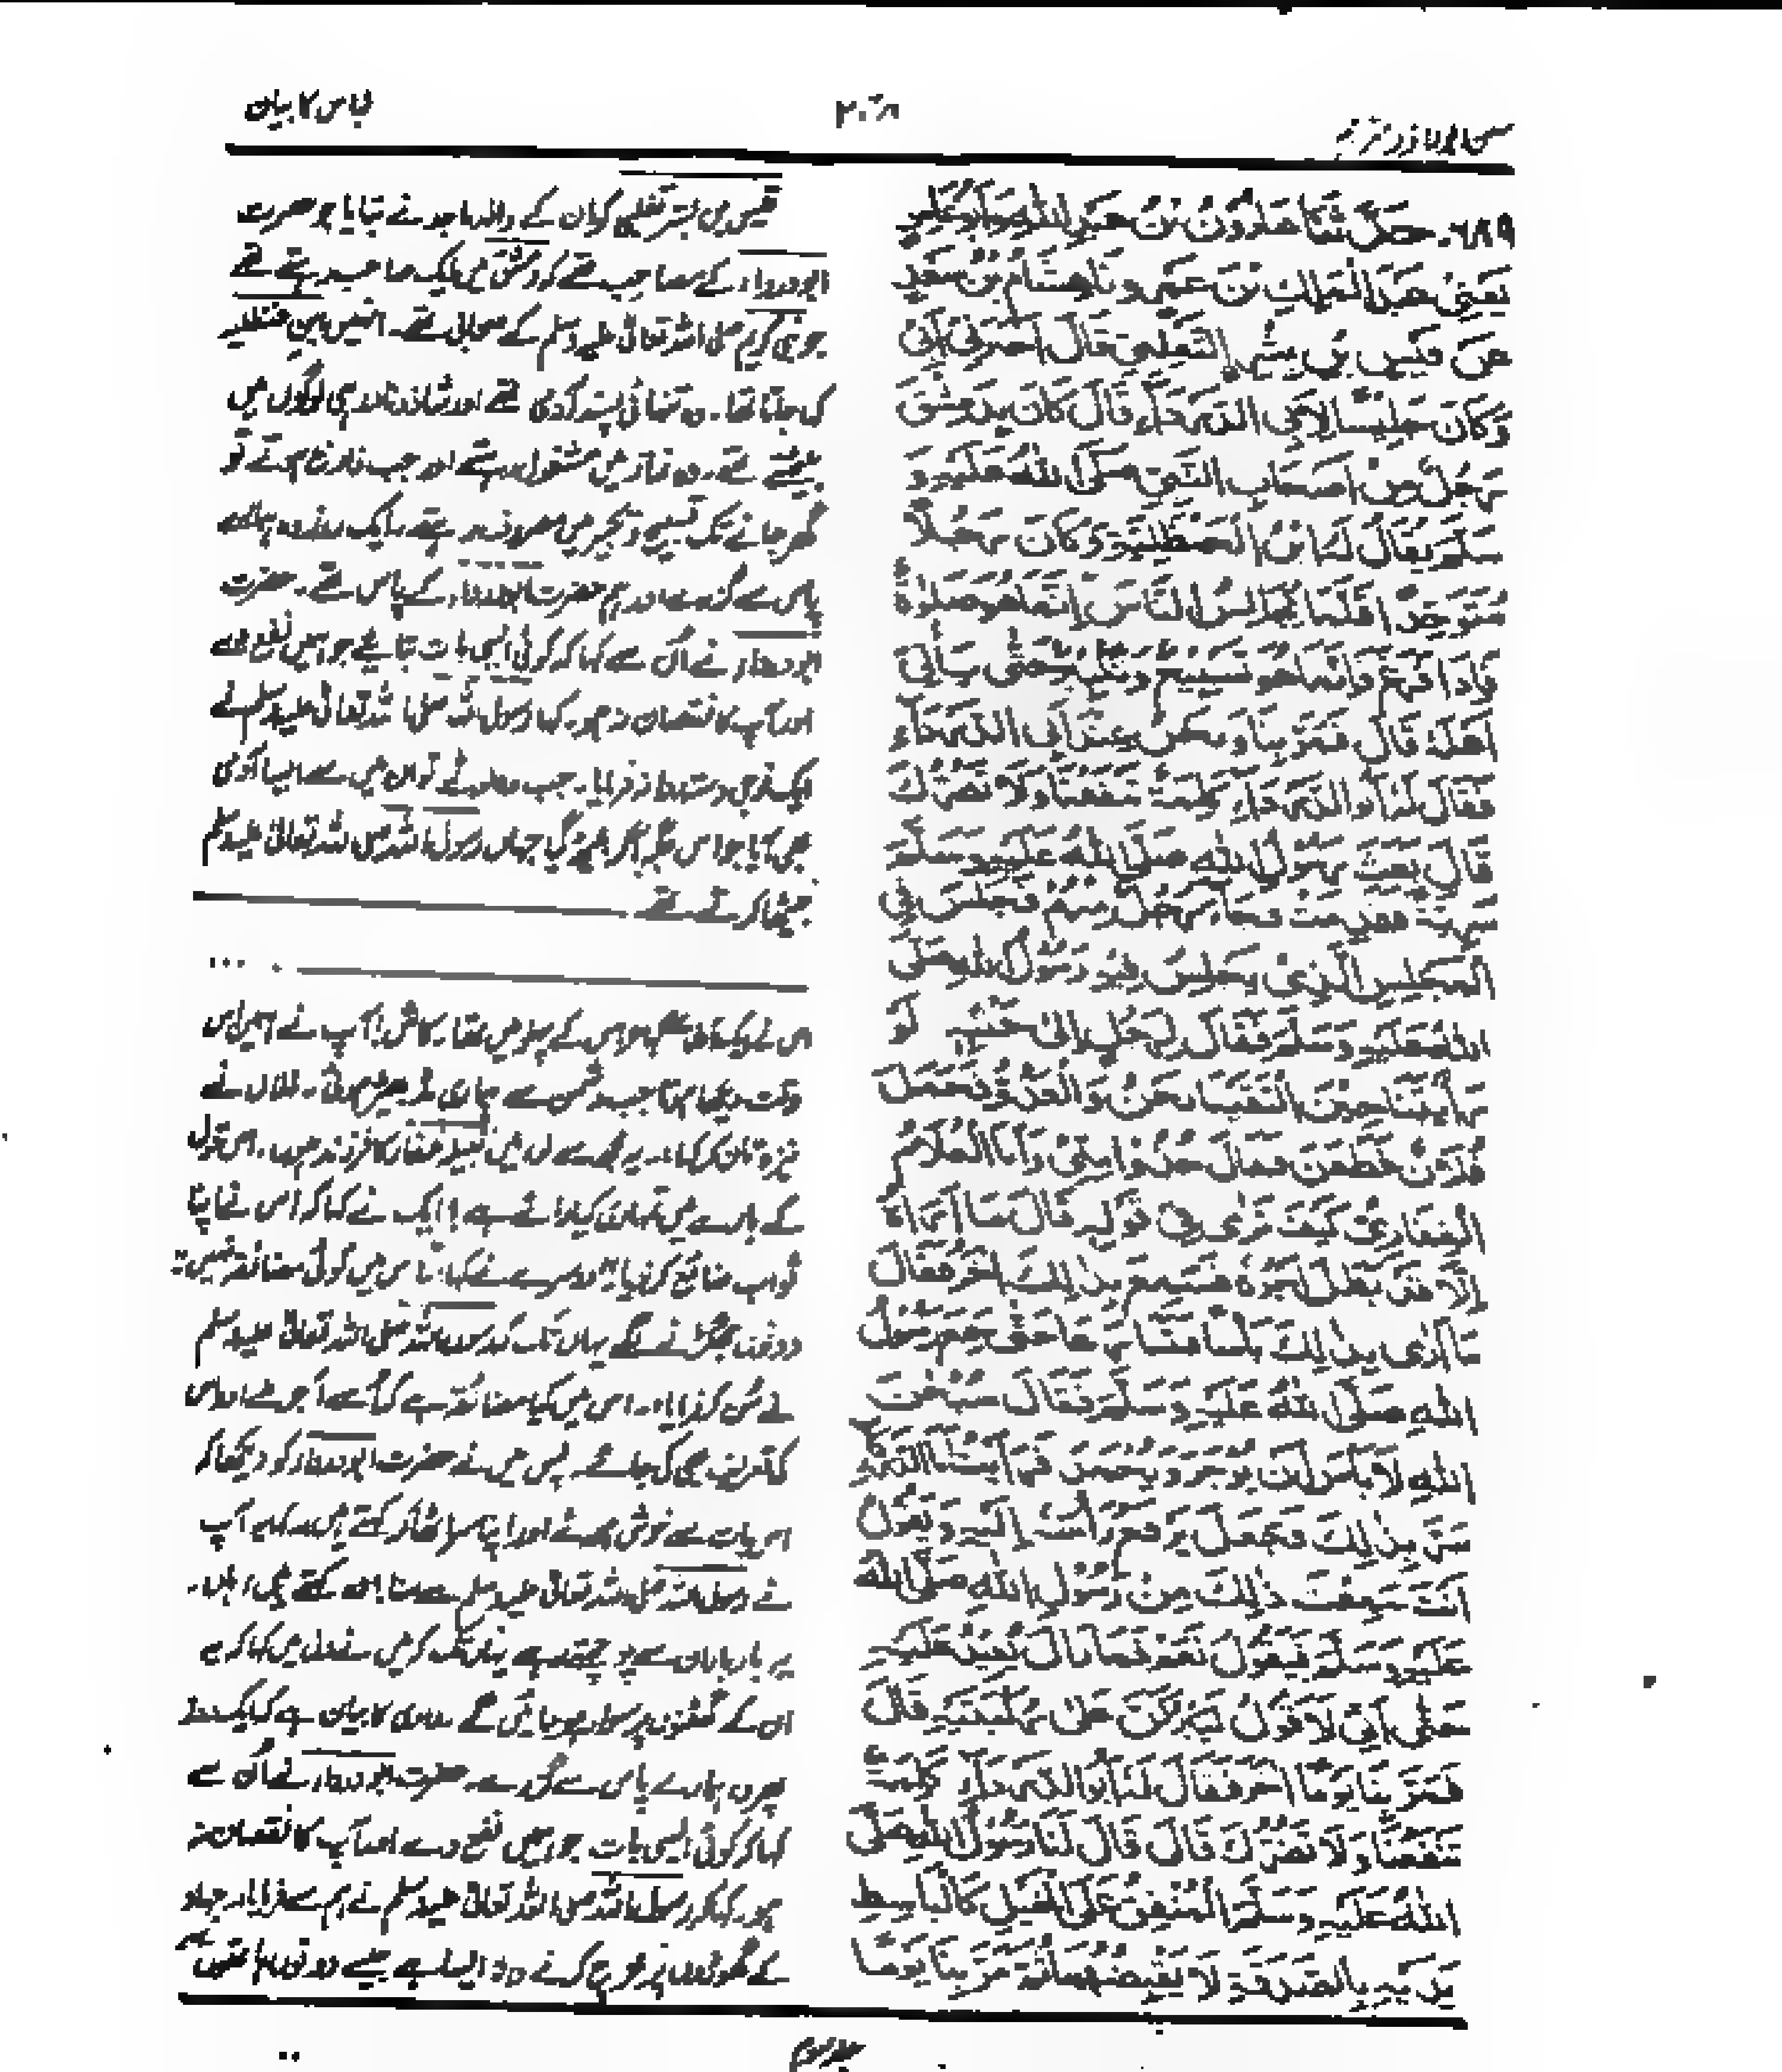 سنن ابوداؤد مترجم
۲۰۳
لباس کا بیان
۶۸۹۔ حَدَّثَنَا هَارُوْنُ بْنُ عَبْدِ اللهِ
يَعْنِيْ عَبْدَ الْمَلِكِ بْنَ عَمْرٍو نَا هِشَامُ بْنُ سَعْدٍ
عَنْ قَيْسِ بْنِ بِشْرٍ التَّغْلِبِيِّ قَالَ أَخْبَرَنِيْ أَبِيْ
وَكَانَ جَلِيْسًا لِأَبِي الدَّرْدَاءِ قَالَ كَانَ بِدِمَشْقَ
رَجُلٌ مِنْ أَصْحَابِ النَّبِيِّ صَلَّى اللهُ عَلَيْهِ وَ
سَلَّمَ يُقَالُ لَهُ ابْنُ الْحَنْظَلِيَّةِ وَكَانَ رَجُلًا
مُتَوَحِّدًا قَلَّمَا يُجَالِسُ النَّاسَ إِنَّمَا هُوَ صَلٰوةٌ
فَإِذَا فَرَغَ فَإِنَّمَا هُوَ تَسْبِيْحٌ وَتَكْبِيْرٌ حَتّٰى يَأْتِيَ
أَهْلَهُ قَالَ فَمَرَّ بِنَا وَنَحْنُ عِنْدَ أَبِي الدَّرْدَاءِ
فَقَالَ لَهُ أَبُو الدَّرْدَاءِ كَلِمَةً تَنْفَعُنَا وَلَا تَضُرُّكَ
قَالَ بَعَثَ رَسُوْلُ اللهِ صَلَّى اللهُ عَلَيْهِ وَسَلَّمَ
سَرِيَّةً فَقَدِمَتْ فَجَاءَ رَجُلٌ مِنْهُمْ فَجَلَسَ فِي
الْمَجْلِسِ الَّذِيْ يَجْلِسُ فِيْهِ رَسُوْلُ اللهِ صَلَّى
اللهُ عَلَيْهِ وَسَلَّمَ فَقَالَ لِرَجُلٍ إِلٰى جَنْبِهِ لَوْ
رَأَيْتَنَا حِيْنَ الْتَقَيْنَا نَحْنُ وَالْعَدُوُّ فَحَمَلَ
فُلَانٌ فَطَعَنَ فَقَالَ خُذْهَا مِنِّيْ وَأَنَا الْغُلَامُ
الْغِفَارِيُّ كَيْفَ تَرٰى فِيْ قَوْلِهِ قَالَ مَا أُرَاهُ
إِلَّا قَدْ بَطَلَ أَجْرُهُ فَسَمِعَ بِذٰلِكَ آخَرُ فَقَالَ
مَا أَرٰى بِذٰلِكَ بَأْسًا فَتَنَازَعَا حَتّٰى سَمِعَ رَسُوْلُ
اللهِ صَلَّى اللهُ عَلَيْهِ وَسَلَّمَ فَقَالَ سُبْحَانَ
اللهِ لَا بَأْسَ أَنْ يُؤْجَرَ وَيُحْمَدَ فَرَأَيْتُ أَبَا الدَّرْدَاءِ
سُرَّ بِذٰلِكَ فَجَعَلَ يَرْفَعُ رَأْسَهُ إِلَيْهِ وَيَقُوْلُ
أَنْتَ سَمِعْتَ ذٰلِكَ مِنْ رَسُوْلِ اللهِ صَلَّى اللهُ
عَلَيْهِ وَسَلَّمَ فَيَقُوْلُ نَعَمْ فَمَا زَالَ يُعِيْدُ عَلَيْهِ
حَتّٰى إِنِّيْ لَأَقُوْلُ لَيَبْرُكَنَّ عَلٰى رُكْبَتَيْهِ قَالَ
فَمَرَّ بِنَا يَوْمًا آخَرَ فَقَالَ لَهُ أَبُو الدَّرْدَاءِ كَلِمَةً
تَنْفَعُنَا وَلَا تَضُرُّكَ قَالَ قَالَ لَنَا رَسُوْلُ اللهِ صَلَّى
اللهُ عَلَيْهِ وَسَلَّمَ الْمُنْفِقُ عَلَى الْخَيْلِ كَالْبَاسِطِ
يَدَيْهِ بِالصَّدَقَةِ لَا يَقْبِضُهَا ثُمَّ مَرَّ بِنَا يَوْمًا
قیس بن بشر تغلبی کو ان کے والد ماجد نے بتایا جو حضرت
ابودرداء کے مصاحب تھے کہ دمشق میں ایک صاحب رہتے تھے
جو نبی کریم صلی اللہ تعالیٰ علیہ وسلم کے صحابی تھے۔ انہیں ابن حنظلیہ
کہا جاتا تھا۔ وہ تنہائی پسند آدمی تھے اور شاذ و نادر ہی لوگوں میں
بیٹھتے تھے۔ وہ نماز میں مشغول رہتے اور جب فارغ ہوتے تو
گھر جانے تک تسبیح و تکبیر میں مصروف رہتے۔ ایک روز وہ ہمارے
پاس سے گزرے اور ہم حضرت ابودرداء کے پاس تھے۔ حضرت
ابودرداء نے اُن سے کہا کہ کوئی ایسی بات بتایئے جو ہمیں نفع دے
اور آپ کا نقصان نہ ہو۔ کہا رسول اللہ صلی اللہ تعالیٰ علیہ وسلم نے
ایک فوجی دستہ روانہ فرمایا۔ جب وہ لوٹے تو ان میں سے ایسا آدمی
بھی آیا جو اس جگہ آکر بیٹھ گیا جہاں رسول اللہ صلی اللہ تعالیٰ علیہ وسلم
بیٹھا کرتے تھے
اس نے ایک آدمی سے کہا جو اس کے پہلو میں تھا۔ کاش! آپ نے ہمیں اس
وقت دیکھا ہوتا جب دشمن سے ہماری مڈبھیڑ ہوئی۔ فلاں نے
نیزہ تان کر کہا:۔ یہ مجھ سے لو میں قبیلہ غفار کا فرزند ہوں۔ اس قول
کے بارے میں تمہاری کیا رائے ہے؟ ایک نے کہا کہ اس نے اپنا
ثواب ضائع کر دیا۔ دوسرے نے کہا:۔ اس میں کوئی مضائقہ نہیں ہے
دونوں جھگڑنے لگے یہاں تک کہ رسول اللہ صلی اللہ تعالیٰ علیہ وسلم
نے سُن کر فرمایا:۔ اس میں کیا مضائقہ ہے کہ اُسے اجر ملے اور اس
کی تعریف بھی کی جائے۔ پس میں نے حضرت ابودرداء کو دیکھا کہ
اس بات سے خوش ہوئے اور اپنا سر اٹھا کر کہتے ہیں کہ کیا آپ
نے رسول اللہ صلی اللہ تعالیٰ علیہ وسلم سے سنا؟ وہ کہتے ہیں، ہاں۔
یہ بار بار ان سے پوچھتے رہے یہاں تک کہ میں نے دل میں کہا کہ یہ
ان کے گھٹنوں پر سوار ہو جائیں گے۔ راوی کا بیان ہے کہ ایک روز
پھر وہ ہمارے پاس سے گزرے۔ حضرت ابودرداء نے اُن سے
کہا کہ کوئی ایسی بات جو ہمیں نفع دے اور آپ کا نقصان نہ
ہو۔ کہا کہ رسول اللہ صلی اللہ تعالیٰ علیہ وسلم نے ہم سے فرمایا:۔ جہاد
کے گھوڑوں پر خرچ کرنے والا ایسا ہے جیسے دونوں ہاتھوں سے
جلد سوم